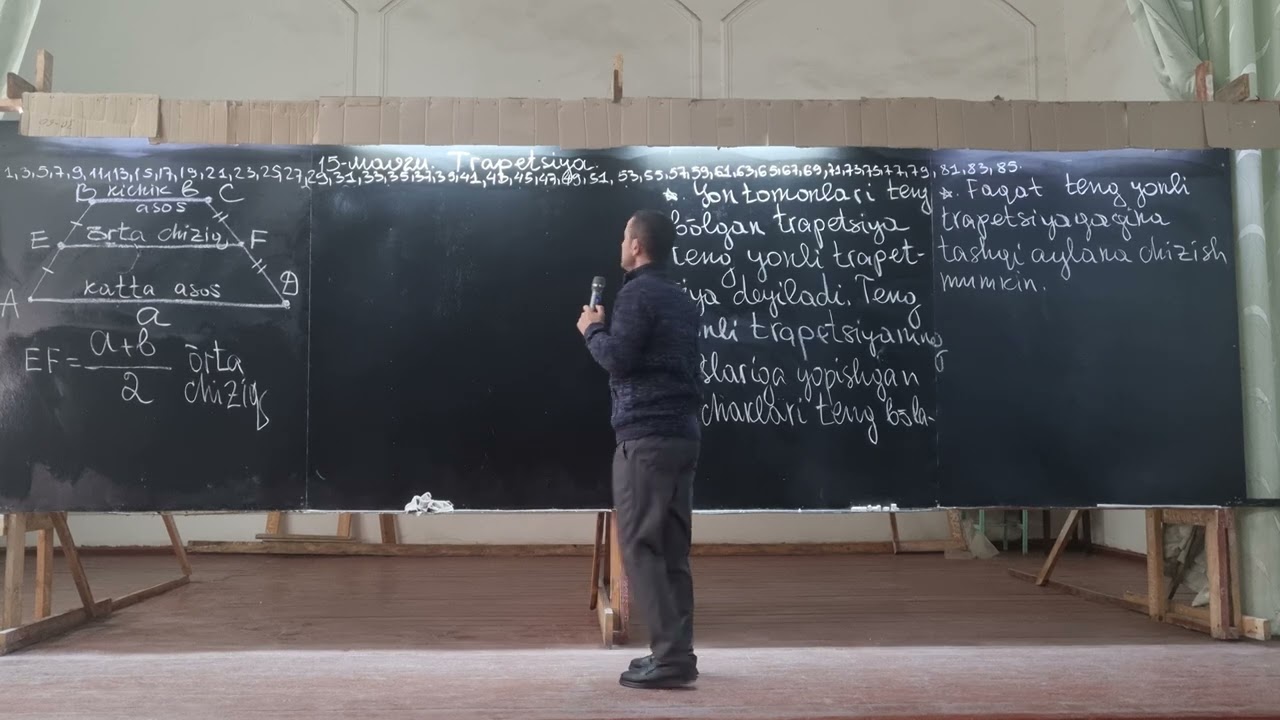 15-mavzu. Trapetsiya.
1,3,5,7,9,11,13,15,17,19,21,23,25,27,29,31,33,35,37,39,41,43,45,47,49,51,53,55,57,59,61,63,65,67,69,71,73,75,77,79,81,83,85.
B kichik b C
asos
E ōrta chiziq F
A katta asos D
a
EF = a+b / 2 ōrta
chiziq
* Yon tomonlari teng
bōlgan trapetsiya
teng yonli trapet-
iya deyiladi. Teng
nli trapetsiyaning
slariga yopishgan
chaklari teng bōla-
* Faqat teng yonli
trapetsiyagagina
tashqi aylana chizish
mumkin.